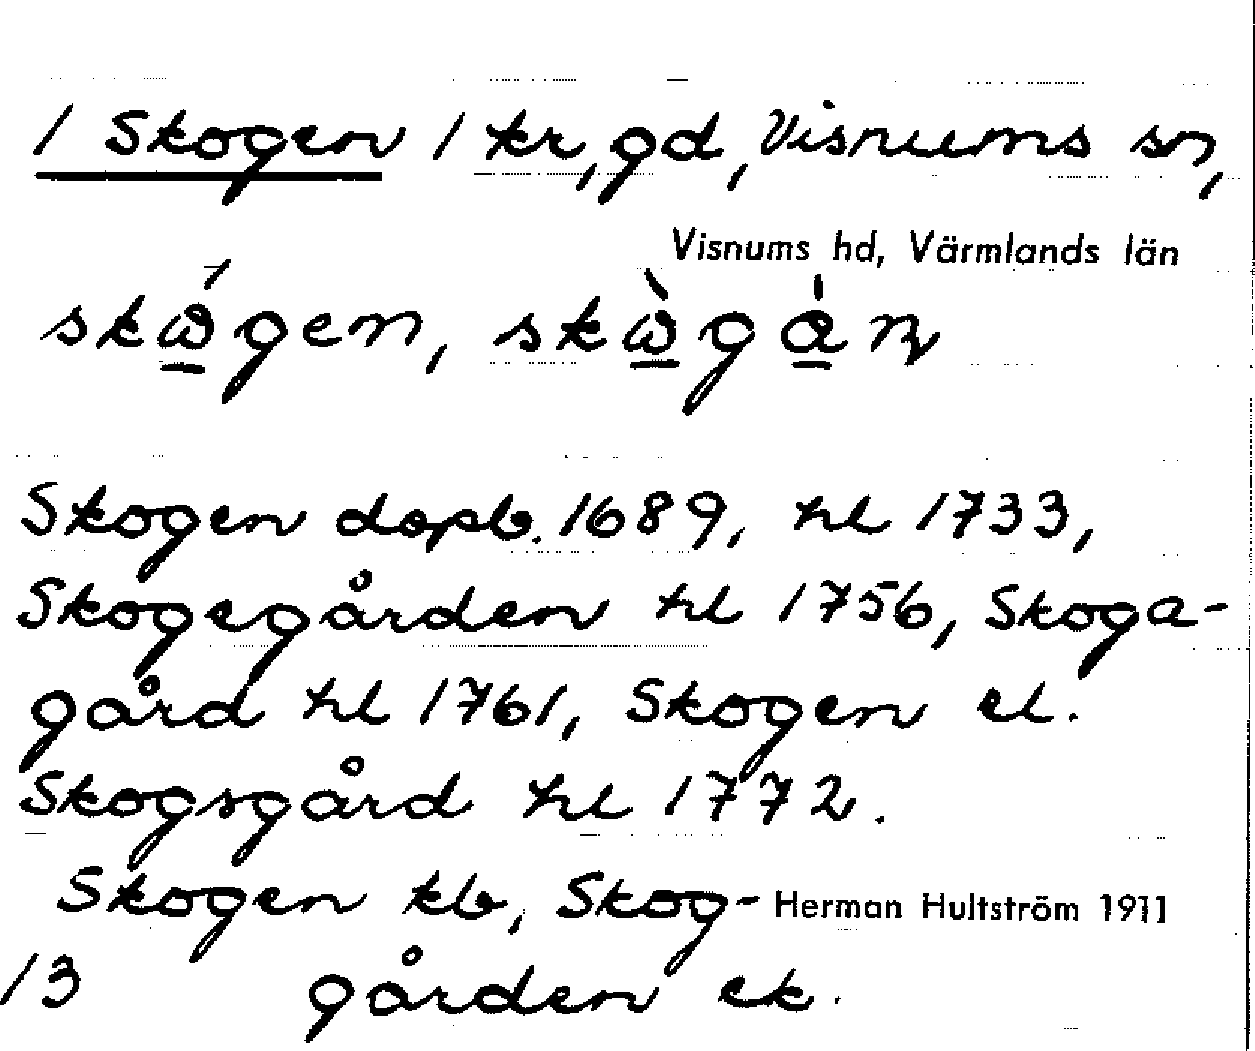 1 Skogen 1 kr, gd, Visnums sn,
Visnums hd, Värmlands län
Skogen dopb. 1689, hl 1733,
Skogegården hl 1756, Skoga-
gård hl 1761, Skogen el.
Skogsgård hl 1772.
Skogen kb, Skog-
Herman Hultström 1911
13 gården ek.